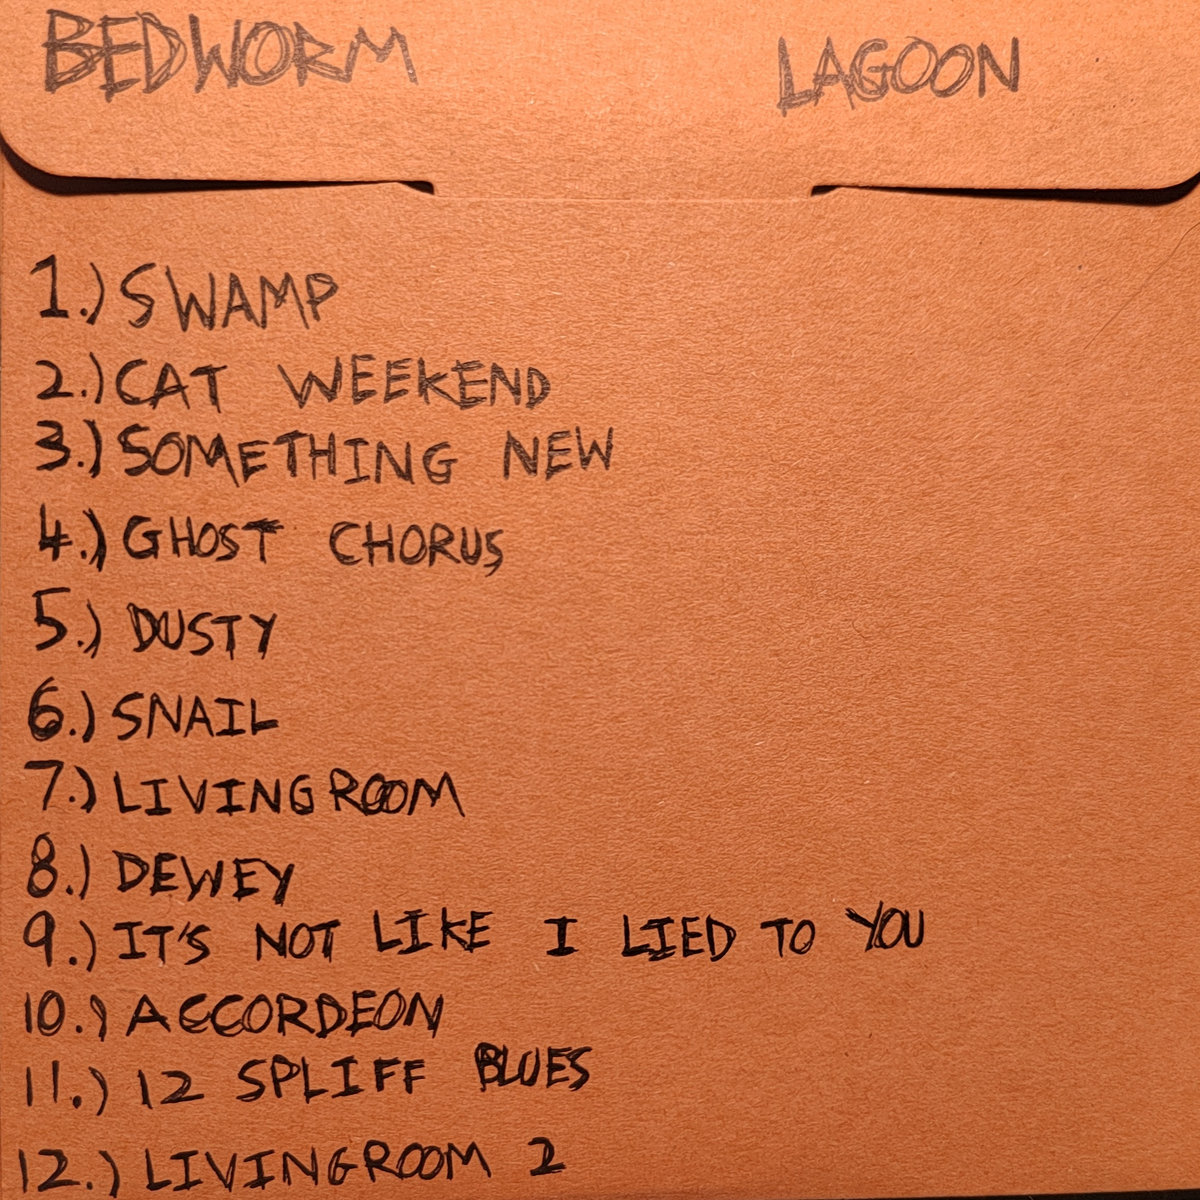 BEDWORM LAGOON
1.) SWAMP
2.) CAT WEEKEND
3.) SOMETHING NEW
4.) GHOST CHORUS
5.) DUSTY
6.) SNAIL
7.) LIVINGROOM
8.) DEWEY
9.) IT'S NOT LIKE I LIED TO YOU
10.) ACCORDEON
11.) 12 SPLIFF BLUES
12.) LIVINGROOM 2